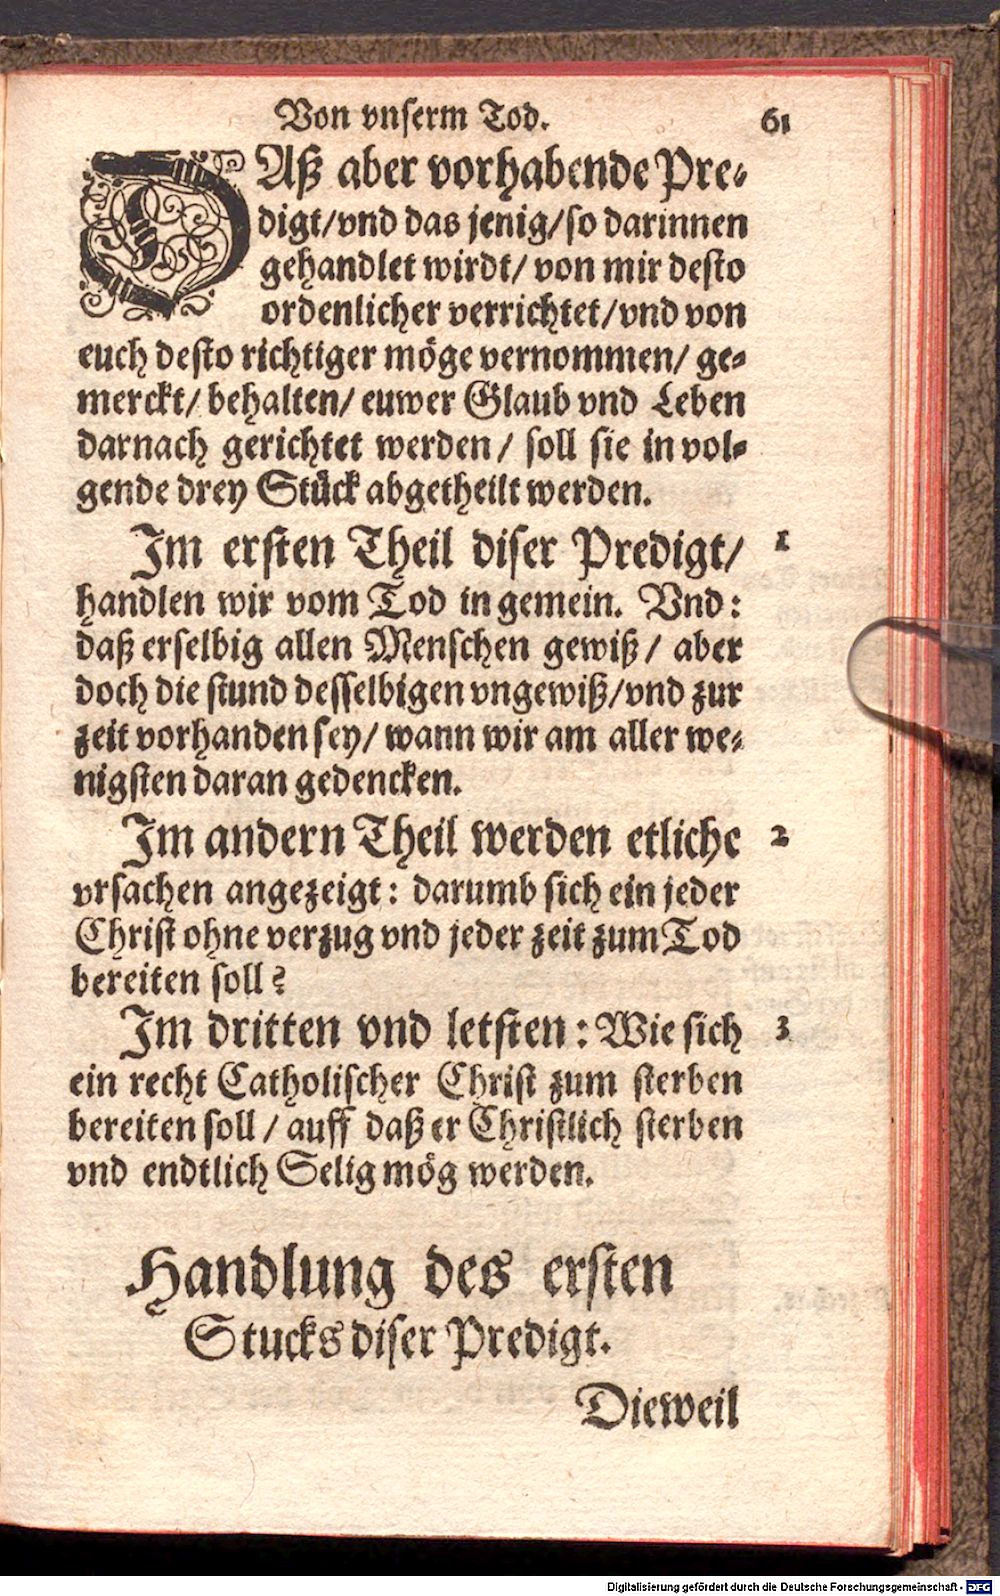 Von vnserm Tod. 61
DAß aber vorhabende Pre-
digt/vnd das jenig/so darinnen
gehandlet wirdt/ von mir desto
ordenlicher verrichtet/vnd von
euch desto richtiger möge vernommen/ ge-
merckt/ behalten/ euwer Glaub vnd Leben
darnach gerichtet werden/ soll sie in vol-
gende drey Stück abgetheilt werden.
Im ersten Theil diser Predigt/ 1
handlen wir vom Tod in gemein. Vnd:
daß erselbig allen Menschen gewiß/ aber
doch die stund desselbigen vngewiß/vnd zur
zeit vorhanden sey/ wann wir am aller we-
nigsten daran gedencken.
Im andern Theil werden etliche 2
vrsachen angezeigt: darumb sich ein jeder
Christ ohne verzug vnd jeder zeit zum Tod
bereiten soll?
Im dritten vnd letsten: Wie sich 3
ein recht Catholischer Christ zum sterben
bereiten soll/ auff daß er Christlich sterben
vnd endtlich Selig mög werden.
Handlung des ersten
Stucks diser Predigt.
Dieweil
Digitalisierung gefördert durch die Deutsche Forschungsgemeinschaft - DFG